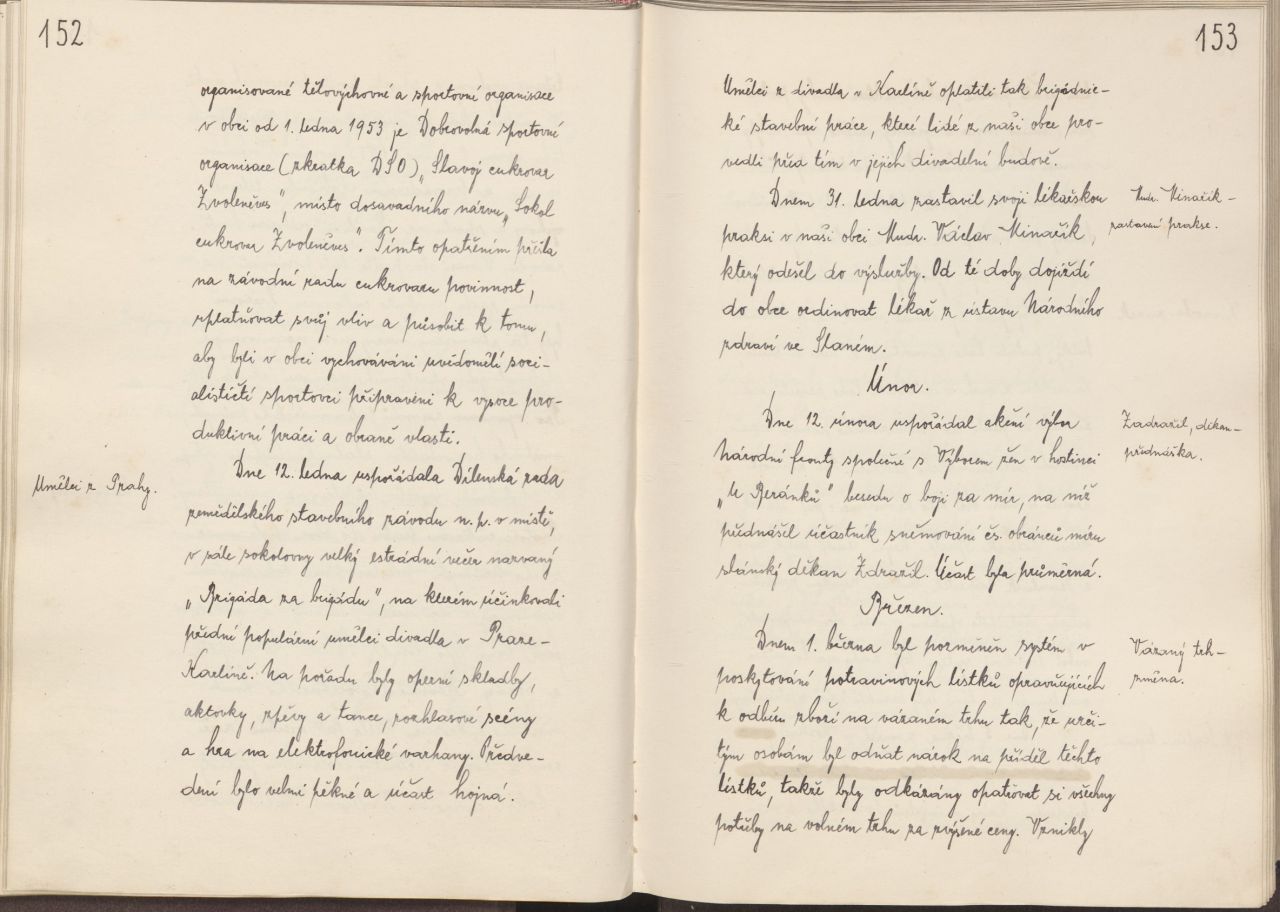 152
organisované tělovýchovné a sportovní organisace
v obci od 1. ledna 1953 je Dobrovolná sportovní
organisace (zkratka DSO) „Slavoj cukrovar
Zvoleněves", místo dosavadního názvu „Sokol
cukrovar Zvoleněves". Tímto opatřením přešla
na závodní radu cukrovaru povinnost,
uplatňovat svůj vliv a působit k tomu,
aby byli v obci vychováváni uvědomělí soci-
alističtí sportovci připraveni k vysoce pro-
duktivní práci a obraně vlasti.
Umělci z Prahy.
Dne 12. ledna uspořádala Dílenská rada
zemědělského stavebního závodu n. p. v místě,
v sále sokolovny velký estrádní večer nazvaný
„Brigáda za brigádu", na kterém účinkovali
přední populární umělci divadla v Praze-
Karlíně. Na pořadu byly operní skladby,
aktovky, zpěvy a tance, rozhlasové scény
a hra na elektrofonické varhany. Předve-
dení bylo velmi pěkné a účast hojná.
153
Umělci z divadla v Karlíně oplatili tak brigádnic-
ké stavební práce, které lidé z naší obce pro-
vedli před tím v jejich divadelní budově.
Dnem 31. ledna zastavil svoji lékařskou
praksi v naší obci Mudr. Václav Minařík,
který odešel do výslužby. Od té doby dojíždí
do obce ordinovat lékař z ústavu Národního
zdraví ve Slaném.
Mudr. Minařík -
zastavení prakse.
Únor.
Dne 12. února uspořádal akční výbor
Národní fronty společně s Výborem žen v hostinci
„U Beránků" besedu o boji za mír, na níž
přednášel účastník sněmování čs. obránců míru
slánský děkan Zdražil. Účast byla průměrná.
Zadražil, děkan-
přednáška.
Březen.
Dnem 1. března byl pozměněn systém v
poskytování potravinových lístků opravňujících
k odběru zboží na vázaném trhu tak, že urči-
tým osobám byl odňat nárok na příděl těchto
lístků, takže byly odkázány opatřovat si všechny
potřeby na volném trhu za zvýšené ceny. Vznikly
Vázaný trh-
změna.